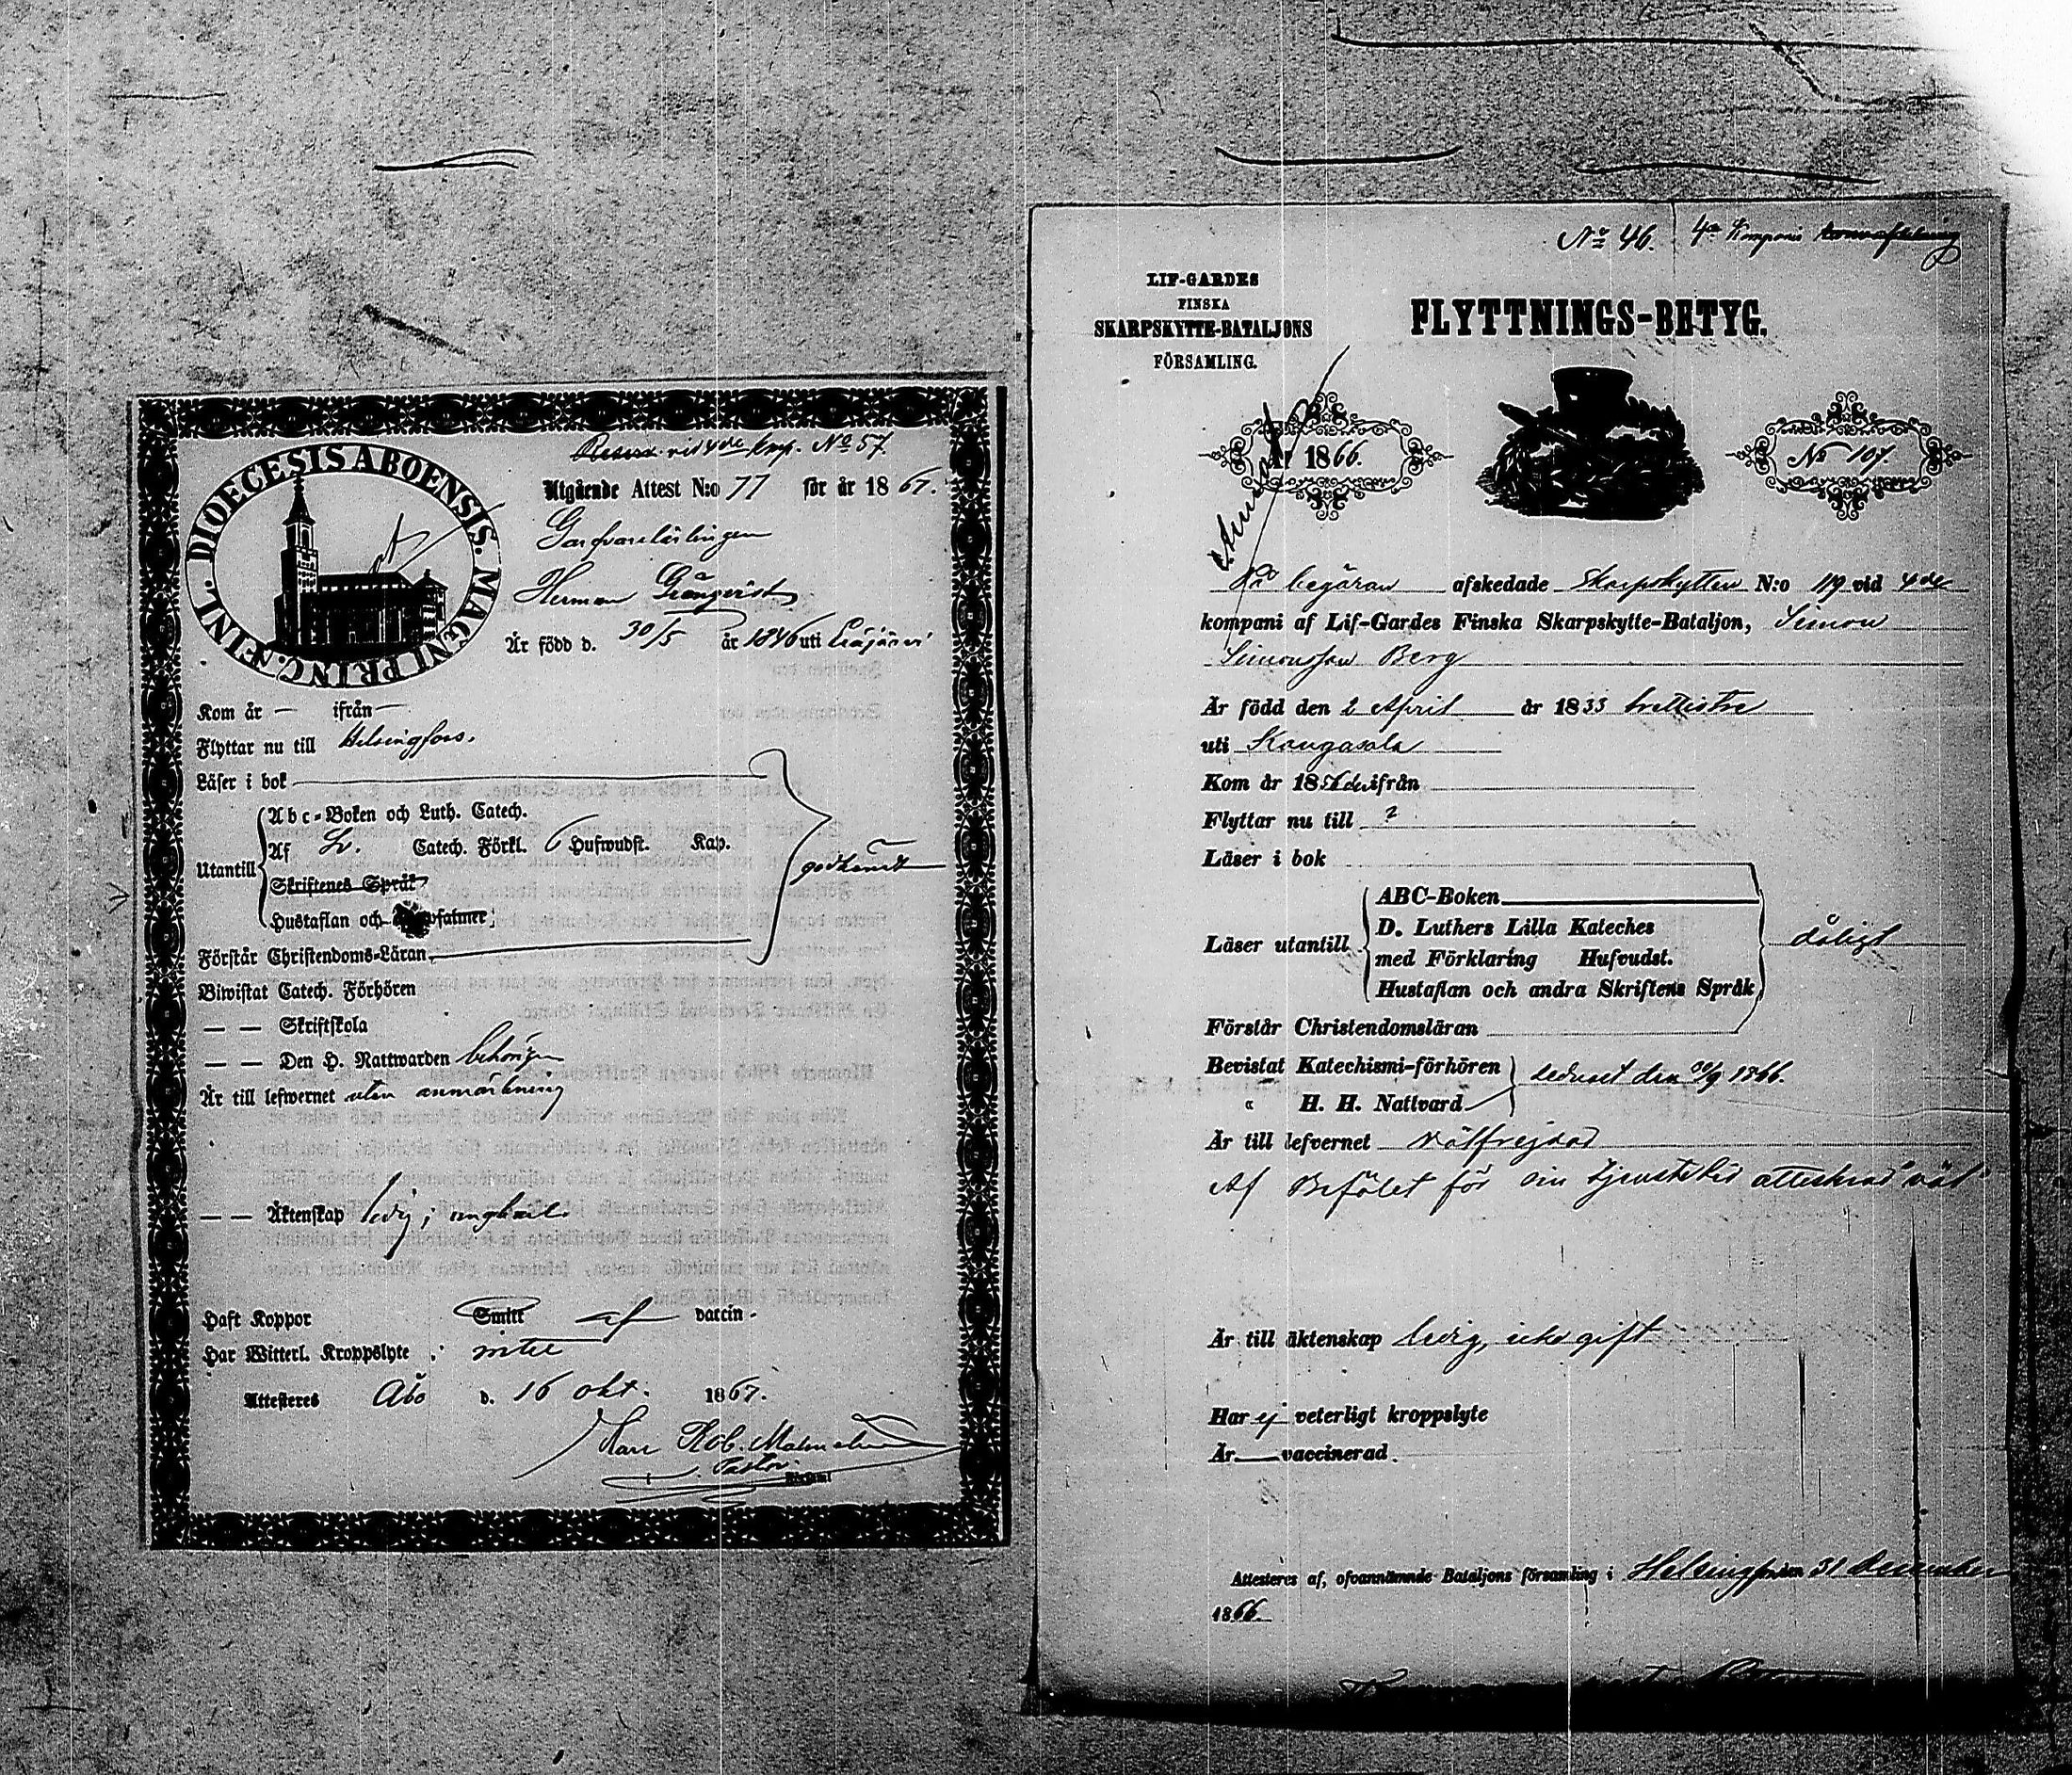 DIOECESIS ABOENSIS. MAGNI PRINC. FINL.
vid 4de komp. No 57.
Utgående Attest N:o 77 för år 1867.
Garfvarelärlingen
Herman Grönqvist
Är född d. 30/5 år 1846 uti
Kom år — ifrån —
Flyttar nu till Helsingfors.
Läser i bok
Abc-Boken och Luth. Catech.
Af Sv. Catech. Förkl. 6 Hufwudst. Kap.
Utantill
Skriftenes Språk
godkändt
Hustaflan och
Förstår Christendoms-Läran
Biwistat Catech. Förhören
— — Skriftskola
— — Den H. Nattwarden behörigen
Är till lefwernet utan anmärkning
— — Äktenskap ledig; ungkarl
Haft Koppor Smitt af vaccin.
Har Witterl. Kroppslyte intet
Attesteres Åbo d. 16 okt. 1867.
Karl Rob. Malm
Pastor.
No 46. 4de Kompani
LIF-GARDES
FINSKA
SKARPSKYTTE-BATALJONS
FÖRSAMLING.
FLYTTNINGS-BETYG.
År 1866.
No 107.
På begäran afskedade Skarpskytten N:o 119 vid 4de
kompani af Lif-Gardes Finska Skarpskytte-Bataljon, Simon
Simonsson Berg
Är född den 2 April år 1833 trettiotre
uti Kangasala
Kom år 18 ifrån
Flyttar nu till ?
Läser i bok
ABC-Boken
D. Luthers Lilla Kateches
Läser utantill
med Förklaring Hufvudst.
dåligt
Hustaflan och andra Skriftens Språk
Förstår Christendomsläran
Bevistat Katechismi-förhören
senast den 30/9 1866.
" H. H. Nattvard
Är till lefvernet välfrejdad
Af Befälet för sin tjenstetid attesterad "väl"
Är till äktenskap ledig, icke gift
Har ej veterligt kroppslyte
Är — vaccinerad.
Attesteres af, ofvannämnde Bataljons församling i Helsingfors den 31 December
1866.